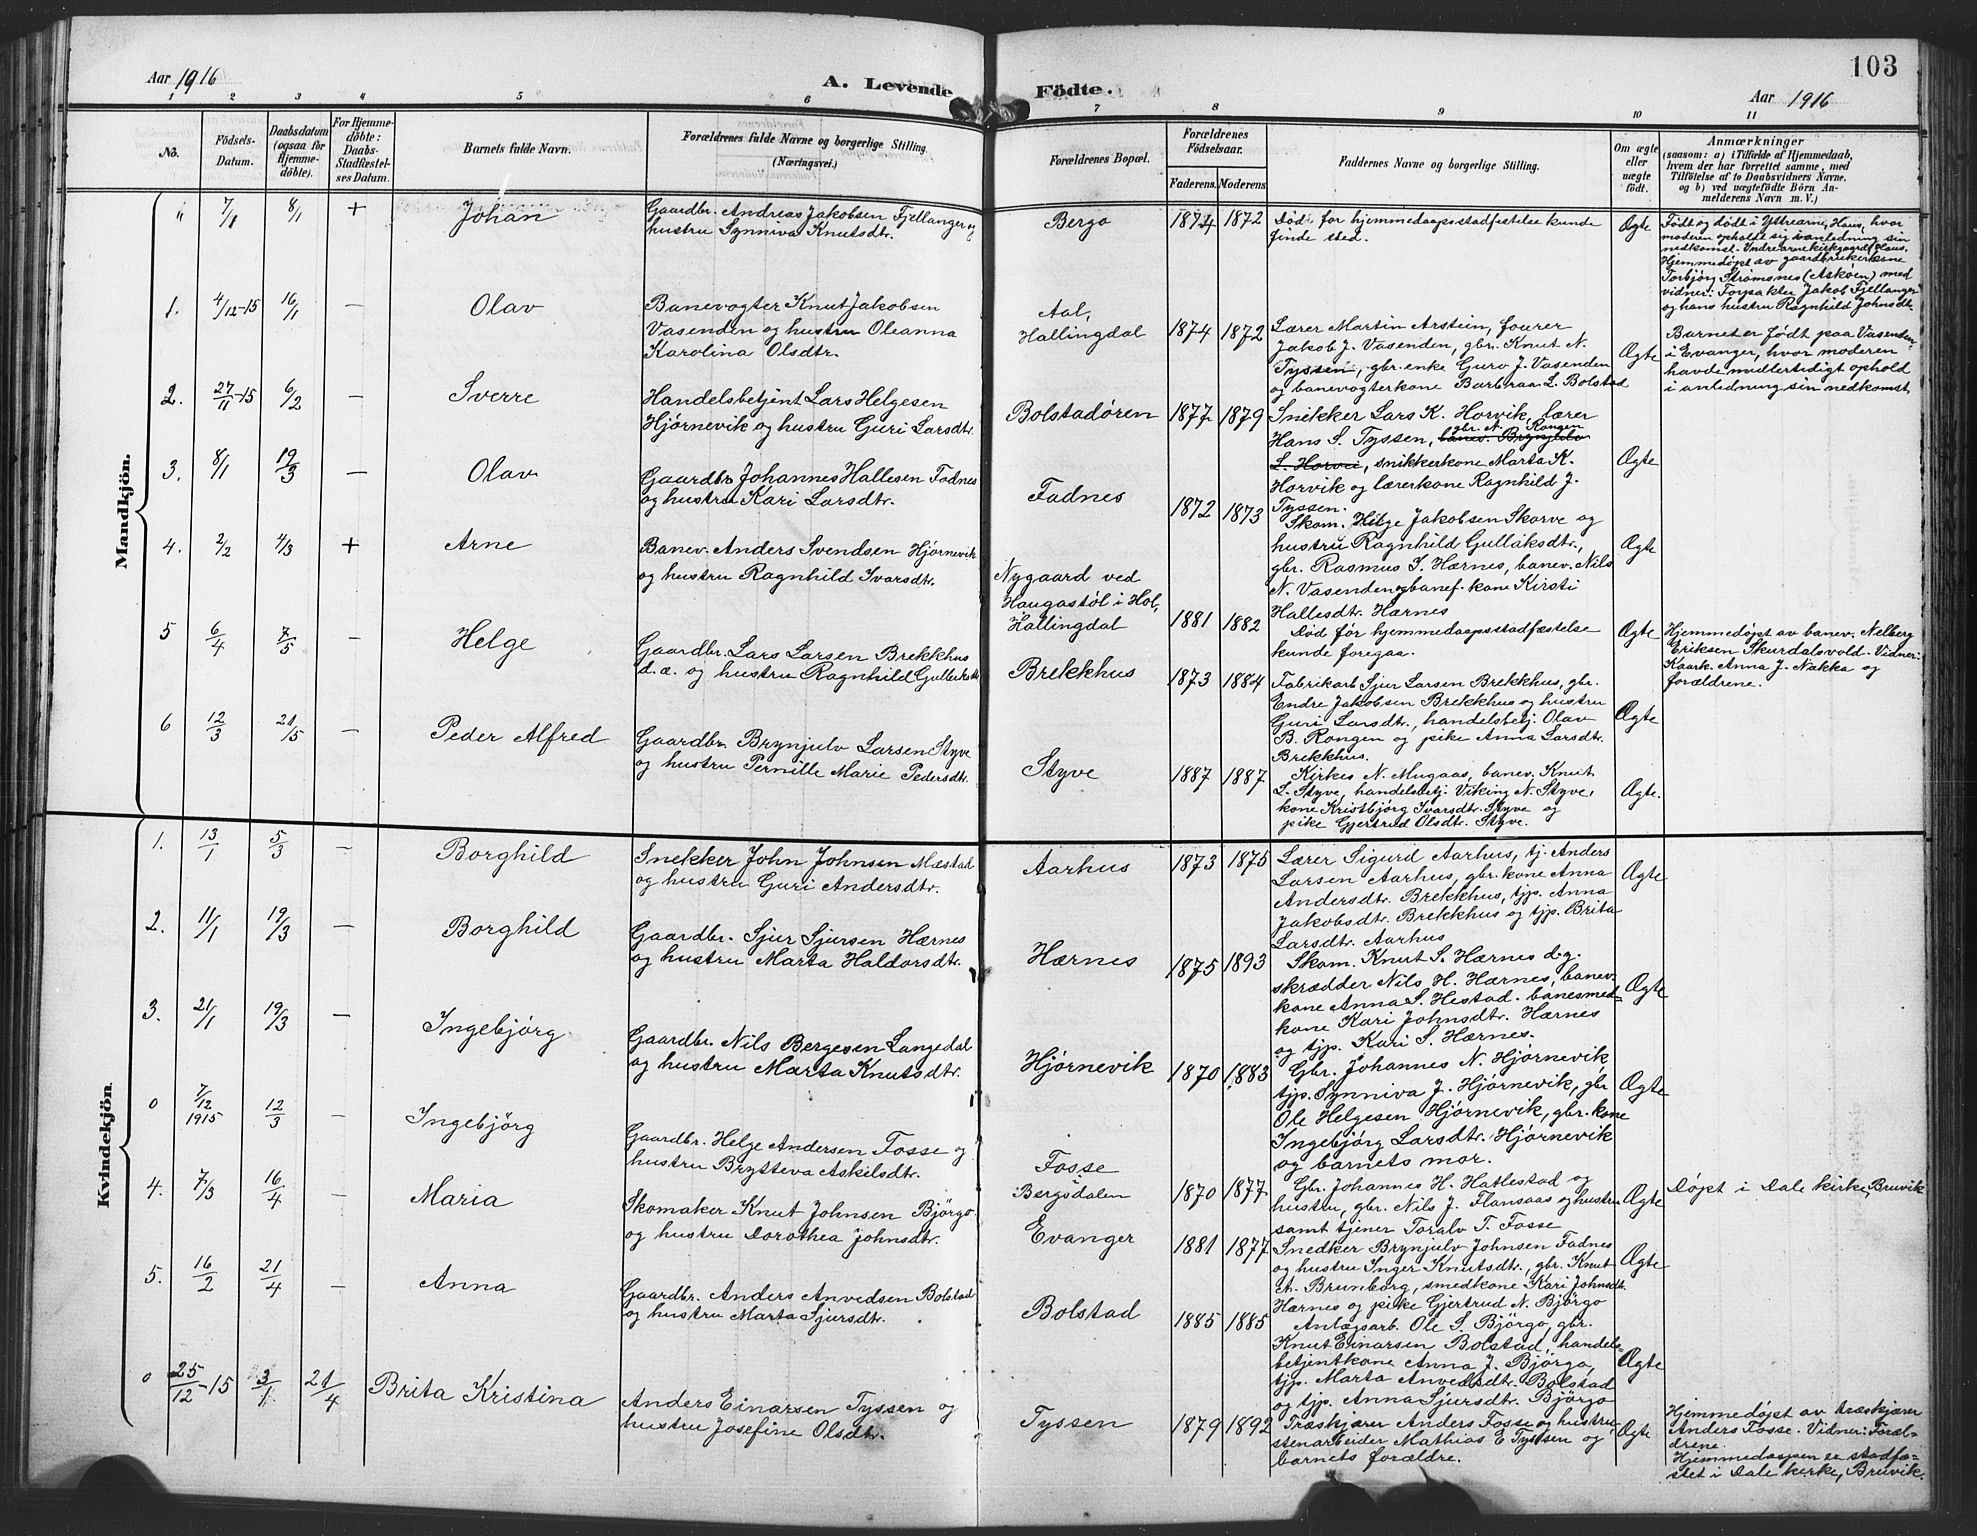 103
Aar 1916
A. Levende
Födte.
Aar 1916
1 2 3 4 5 6 7 8 9 10 11
No.
Födsels-
Datum.
Daabsdatum
(ogsaa for
Hjemme-
döbte).
For Hjemme-
döbte:
Daabs-
Stadfæstel-
ses Datum.
Barnets fulde Navn.
Forældrenes fulde Navne og borgerlige Stilling
(Næringsvei.)
Forældrenes Bopæl.
Forældrenes
Födselsaar.
Faderens. Moderens
Faddernes Navne og borgerlige Stilling.
Om ægte
eller
uægte
födt.
Anmærkninger
(saasom: a) i Tilfælde af Hjemmedaab,
hvem der har forrettet samme, med
Tilföielse af to Daabsvidners Navne.
og b) ved uægtefödte Börn An-
melderens Navn m. V.)
Mandkjön.
" 7/1 8/1 + Johan
Gaardbr. Andreas Jakobsen Fjellanger og
hustru Synniva Knutsdtr.
Bergo
1874 1872
Død før hjemmedaapsstadfestelse kunde
finde sted.
Ægte
Født og dødt i Ytrearne, Haus, hvor
moderen opholdt sig i anledning sin
nedkomst. Indrearne kirkegaard, Haus.
Hjemmedøpt av gaardbrukerkone
Torbjørg Strømsnes (Askøen) med
vidner: Forsakter Jakob Fjellanger
og hans hustru Ragnhild Johnsdtr.
1. 4/12-15 16/1 — Olav
Banevogter Knut Jakobsen
Vasenden og hustru Oleanna
Karolina Olsdtr.
Aal,
Hallingdal
1874 1872
Lærer Martin Arstein, fourer
Jakob J. Vasenden, gbr. Knut N.
Tyssen, gbr. enke Guro J. Vasenden
og banevogterkone Barbraa L. Bolstad
Ægte
Barnet er født paa Vasenden
i Evanger, hvor moderen
havde midlertidigt ophold
i anledning sin nedkomst.
2. 27/11-15 6/2 — Sverre
Handelsbetjent Lars Helgesen
Hjørnevik og hustru Guri Larsdtr.
Bolstadøren
1877 1879
Snekker Lars K. Horvik, lærer
gbr. N. Rongen
Hans S. Tyssen, banev. Brynjulv
L. Horvei, snikkerkone Marta K.
Horvik og lærerkone Ragnhild J.
Tyssen.
Ægte
3. 8/1 19/3 — Olav
Gaardbr. Johannes Hallesen Fadnes
og hustru Kari Larsdtr.
Fadnes
1872 1873
Skom. Helge Jakobsen Skorve og
hustru Ragnhild Gullaksdtr.,
gbr. Rasmus S. Hærnes, banev. Nils
N. Vasenden og banef. kone Kirsti
Hallesdtr. Hærnes
Ægte
4. 2/2 4/3 + Arne
Banev. Anders Svendsen Hjørnevik
og hustru Ragnhild Ivarsdtr.
Nygaard ved
Haugastøl i Hol,
Hallingdal
1881 1882
Død før hjemmedaapsstadfæstelse
kunde foregaa.
Ægte
Hjemmedøpt av banev. Nelberg
Eriksen Skurdalsvold. Vidner:
Kaark. Anna J. Nakka og
forældrene.
5 6/4 7/5 — Helge
Gaardbr. Lars Larsen Brekkhus
d.æ. og hustru Ragnhild Gulleiksdtr
Brekkhus
1873 1884
Fabrikarb. Sjur Larsen Brekkhus, gbr.
Endre Jakobsen Brekkhus og hustru
Guri Larsdtr., handelsbetj. Olav
B. Rongen og pike Anna Larsdtr.
Brekkhus.
Ægte
6 12/3 21/5 — Peder Alfred
Gaardbr. Brynjulv Larsen Styve
og hustru Pernille Marie Pedersdtr.
Styve
1887 1887
Kirkes N. Mugaas, banev. Knut
L. Styve, handelsbetj. Viking N. Styve,
kone Kristbjørg Ivarsdtr. Styve og
pike Gjertrud Olsdtr. Styve.
Ægte.
Kvindekjön.
1. 13/1 5/3 — Borghild
Snekker John Johnsen Mæstad
og hustru Guri Andersdtr.
Aarhus
1873 1875
Lærer Sigurd Aarhus, tj. Anders
Larsen Aarhus, gbr. kone Anna
Andersdtr. Brekkhus, tjp. Anna
Jakobsdtr. Brekkhus og tjp. Brita
Larsdtr. Aarhus
Ægte
2. 11/1 19/3 — Borghild
Gaardbr. Sjur Sjursen Hærnes
og hustru Marta Haldorsdtr.
Hærnes
1875 1893
Skom. Knut S. Hærnes d.y.
skrædder Nils H. Hærnes, banev.
kone Anna S. Hestad. banesmed-
kone Kari Johnsdtr. Hærnes
og tjp. Kari S. Hærnes.
Ægte
3. 21/1 19/3 — Ingebjörg
Gaardbr. Nils Bergesen Langedal
og hustru Marta Knutsdtr.
Hjørnevik
1870 1883
Gbr. Johannes N. Hjørnevik,
tjp. Synniva J. Hjørnevik, gbr.
Ole Helgesen Hjørnevik, gbr. kone
Ingebjørg Larsdtr. Hjørnevik
og barnets mor.
Ægte
0 7/12 1915 12/3 — Ingebjörg
Gaardbr. Helge Andersen Fosse og
hustru Brytteva Askilsdtr.
Fosse
Bergsdalen
1870 1877
Gbr. Johannes H. Hatlestad og
hustru, gbr. Nils J. Flansaas og hustru
samt tjener Toralv T. Fosse
Ægte
Døpt i Dale kirke, Bruvik
4. 7/3 16/4 — Maria
Skomaker Knut Johnsen Björgo
og hustru Dorothea Johnsdtr.
Evanger
1881 1877
Snedker Brynjulv Johnsen Fadnes
og hustru Inger Knutsdtr., gbr. Knut
A. Brunborg, smedkone Kari Johnsdtr.
Hærnes og pike Gjertrud N. Björgo
Ægte
5. 16/2 21/4 — Anna
Gaardbr. Anders Anvedsen Bolstad
og hustru Marta Sjursdtr.
Bolstad
1885 1885
Anlægsarb. Ole S. Björgo, gbr.
Knut Einarsen Bolstad, handels-
betjentkone Anna J. Björgo,
tjp. Marta Anvedsdtr. Bolstad
og tjp. Anna Sjursdtr. Björgo
Ægte
0 25/12-15 3/1 21/4 Brita Kristina
Anders Einarsen Tyssen og
hustru Josefine Olsdtr.
Tyssen
1879 1892
Træskjærer Anders Fosse og hustru
stenarbeider Mathias E Tyssen og
barnets forældre.
Ægte
Hjemmedøpt av træskjærer
Anders Fosse. Vidner: Foræl-
drene.
Hjemmedaapen er stadfæ-
stet i Dale kirke, Bruvik.